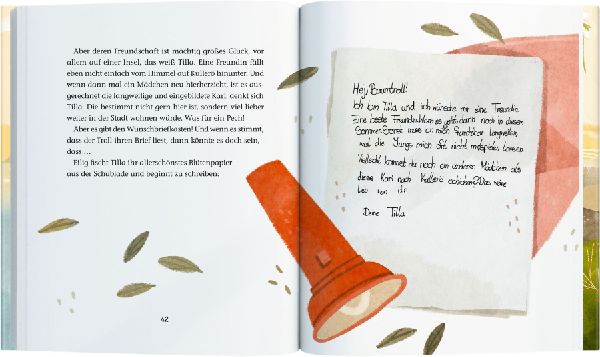 Aber deren Freundschaft ist mächtig großes Glück, vor
allem auf einer Insel, das weiß Tilla. Eine Freundin fällt
eben nicht einfach vom Himmel auf Kullerö hinunter. Und
wenn dann mal ein Mädchen neu hierherzieht, ist es aus-
gerechnet die langweilige und eingebildete Kari, denkt sich
Tilla. Die bestimmt nicht gern hier ist, sondern viel lieber
weiter in der Stadt wohnen würde. Was für ein Pech!
Aber es gibt den Wunschbriefkasten! Und wenn es stimmt,
dass der Troll ihren Brief liest, dann könnte es doch sein,
dass ...
Eilig fischt Tilla ihr allerschönstes Blütenpapier
aus der Schublade und beginnt zu schreiben:
42
Hey Baumtroll!
Ich bin Tilla und ich wünsche mir eine Freundin.
Eine beste Freundin
Sommer
weil die Jungs mich nicht mitspielen lassen.
Vielleicht kannst du noch ein anderes Mädchen als
diese Kari nach Kullerö schicken? Das wäre
lieb von dir
Deine Tilla